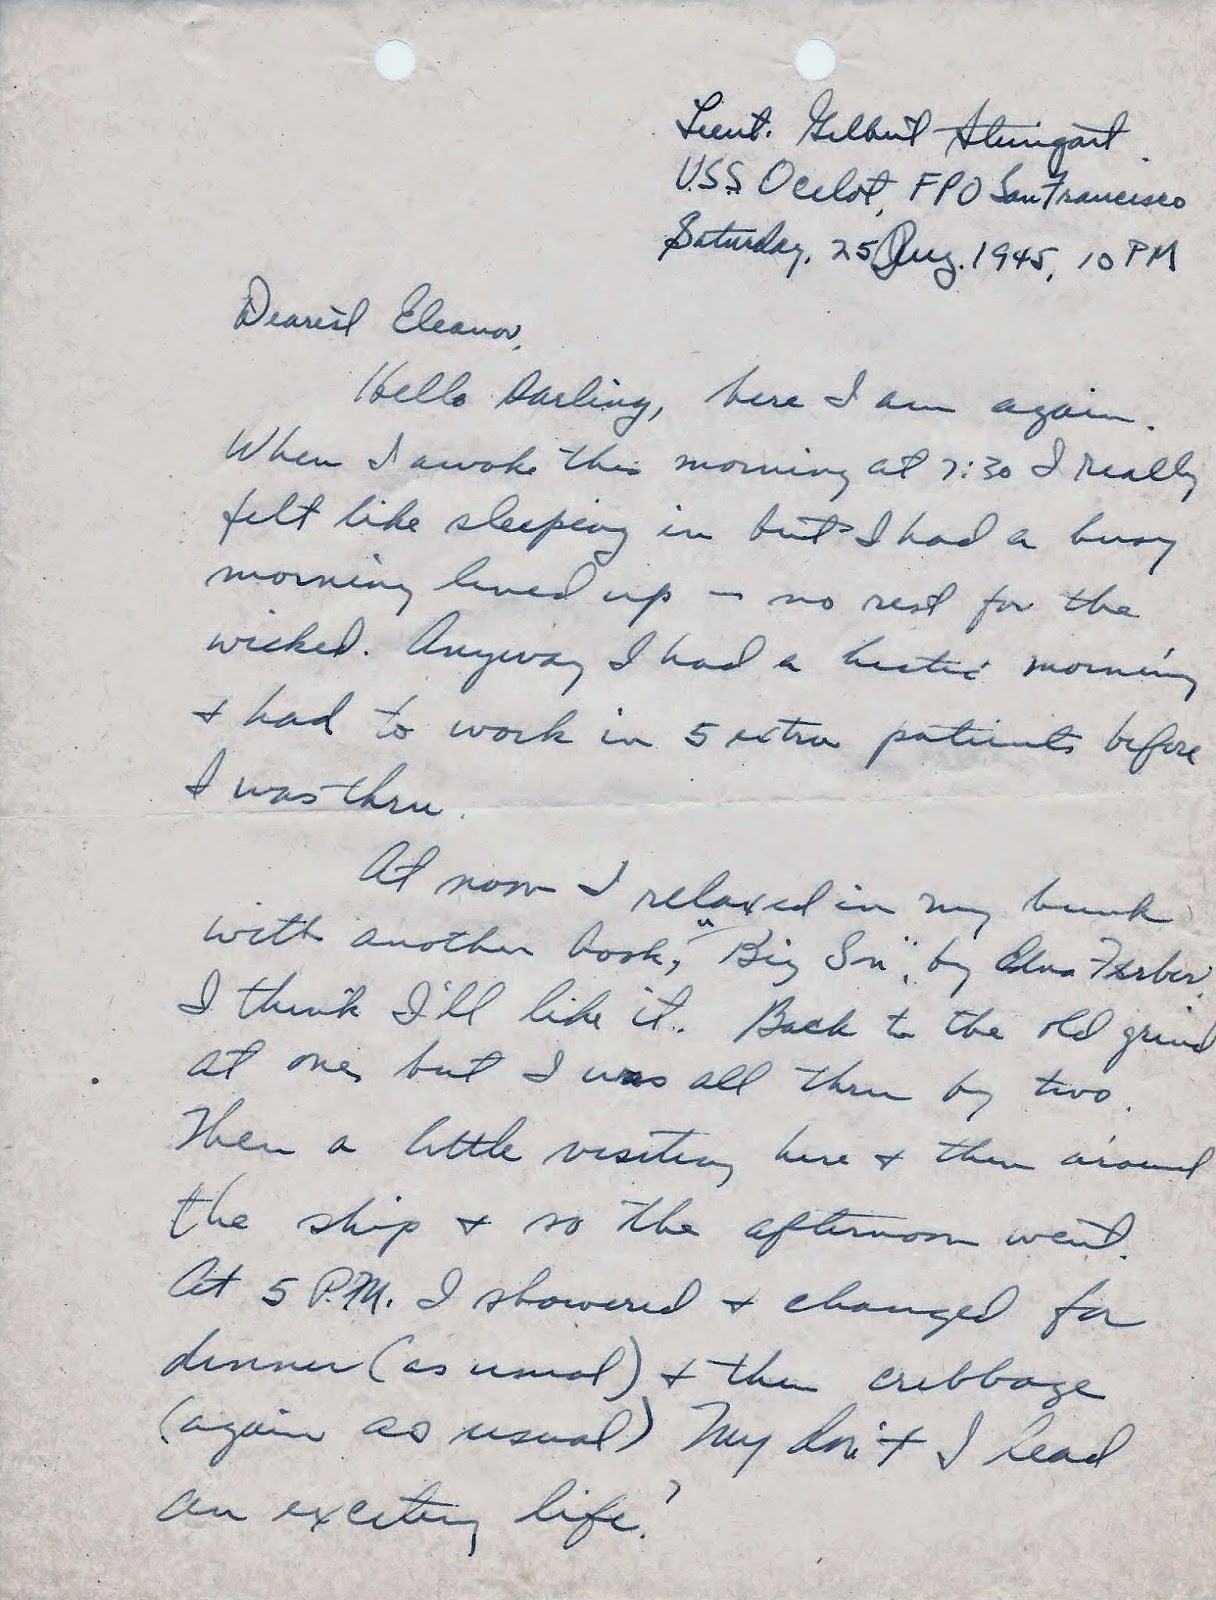 Lieut. Gilbert Steingart
USS Ocelot, FPO San Francisco
Saturday, 25 Aug. 1945, 10 PM
Dearest Eleanor,
Hello Darling, here I am again.
When I awoke this morning at 7:30 I really
felt like sleeping in but I had a busy
morning lined up – no rest for the
wicked. Anyway I had a hectic morning
& had to work in 5 extra patients before
I was thru.
At noon I relaxed in my bunk
with another book, "Big Son", by Edna Ferber.
I think I'll like it. Back to the old grind
at one, but I was all thru by two.
Then a little visiting here & then around
the ship & so the afternoon went.
At 5 P.M. I showered & changed for
dinner (as usual) & then cribbage
(again as usual) My don't I lead
an exciting life?